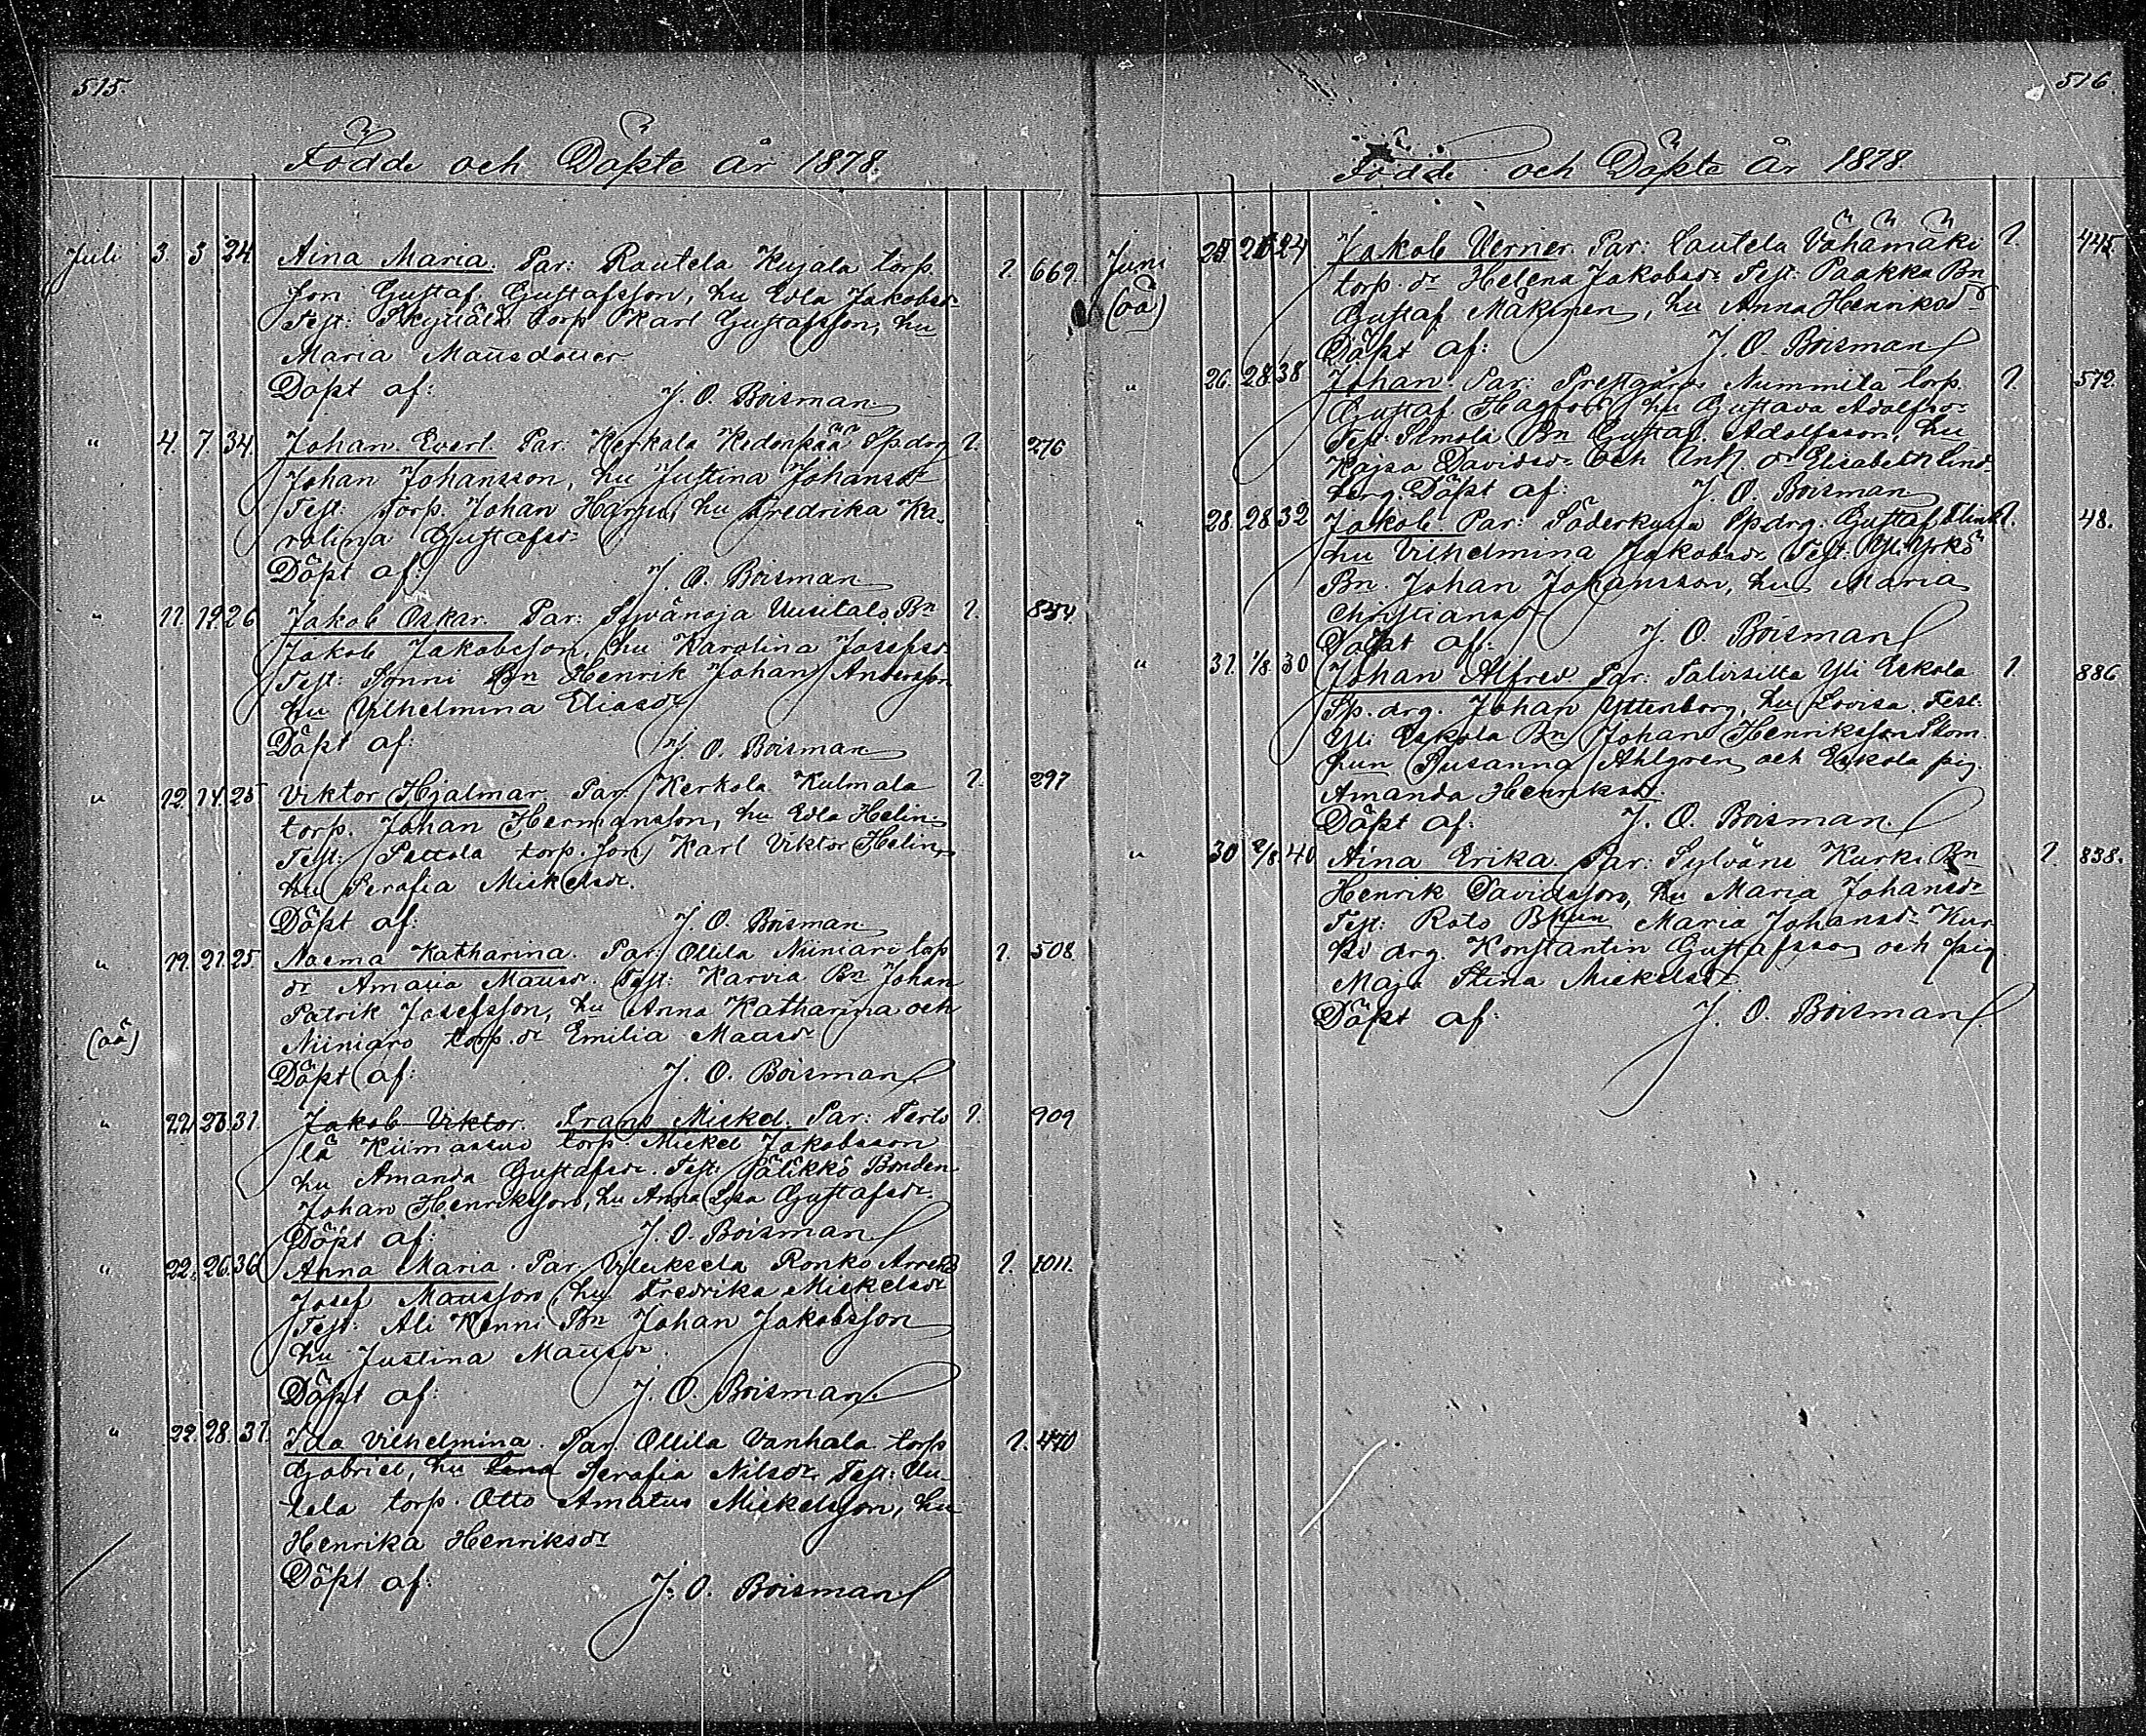 515.
Födde och Döpte år 1878.
Juli 3. 5. 24. Aina Maria. Par: Rautela Kujala torp. 1. 669.
son Gustaf Gustafsson, hu Edla Jakobsdr
Test: Skyttälä torp Karl Gustafsson, hu
Maria Mausdotter
Döpt af: J. O. Boisman
" 4. 7. 34. Johan Evert. Par. Kerkola Kedonpää Spdrg 1. 276
Johan Johansson, hu Justina Johansdr
Test: Torp. Johan Harju, hu Fredrika Ka-
rolina Gustafsdr
Döpt af: J. O. Boisman
" 11. 12 26 Jakob Oskar. Par: Sylvänoja Uusitalo Bn 1.
Jakob Jakobsson, hu Karolina Josefsdr
Test: Sonni Bn Henrik Johan Andersson
hu Vilhelmina Eliasdr
Döpt af: J. O. Boisman
" 12. 14. 25 Viktor Hjalmar Par. Kerkola Kulmala 1. 297
torp. Johan Hermansson, hu Edla Helin.
Test: Pettola torp. son Karl Viktor Helin,
hu Serafia Mickelsdr.
Döpt af: J. O. Boisman
" 19. 21. 25. Naema Katharina. Par Ollila Niiniaro torp 1. 508
dr Amalia Mausdr. Test: Karvia Bn Johan
Patrik Josefsson, hu Anna Katharina och
(oä) Niiniaro torp. dr Emilia Mausdr
Döpt af: J. O. Boisman
" 22. 23. 31. Jakob Viktor. Frans Mickel. Par: 1. 909
lä Kiimassuo torp Mickel Jakobsson
hu Amanda Gustafsdr. Test: Pälikkö Bonden
Johan Henriksson, hu Anna Lisa Gustafsdr.
Döpt af: J. O. Boisman
" 22. 26. 36 Anna Maria. Par. Viluksela Ronko Arrend 1. 1011.
Josef Mausson, hu Fredrika Mickelsdr
Test: Ali Kenni Bn Johan Jakobsson
hu Justina Mausdr.
Döpt af: J. O. Boisman.
" 22. 28. 31. Ida Vilhelmina. Par. Ollila Vanhala torp 1. 470
Gabriel, hu Lena Serafia Nilsdr Test: Uu-
tela torp. Otto Amatus Mickelsson, hu
Henrika Henriksdr
Döpt af: J. O. Boisman
516.
Födde och Döpte År 1878
Juni 24 Jakob Verner. Par: Lautela Vähämäki 1. 445.
torp. dr Helena Jakobsdr Test: Paakka Bn
(oä) Gustaf Mäkinen, hu Anna Henriksdr
Döpt af: J. O. Boisman
" 26. 28. 38 Johan. Par: Prestgårds Nummila torp. 1. 572.
Gustaf Hagfors hu Gustava Adolfsdr
Test: Simola Bn Gustaf Adolfsson, hu
Kajsa Davidsdr och Enk. dr Elisabeth Lind-
berg. Döpt af: J. O. Boisman
" 28. 28 32 Jakob. Par: Söderkulla Spdrg. Gustaf Flink 1. 48.
hu Vilhelmina Jakobsdr Test: Yli Yrkö
Bn. Johan Johansson, hu Maria
Christiansdr
Döpt af: J. O. Boisman
" 31. 1/8 30 Johan Alfred Par: Palvisilta Yli Eskola 1. 886
Sp. drg. Johan Yttenborg, hu Lovisa. Test:
Yli Eskola Bn Johan Henriksson Skom.
hun Susanna Ahlgren och Eskola pig.
Amanda Henriksdr.
Döpt af: J. O. Boisman.
" 30 2/8. 40 Aina Erika Par: Sylväne Kurki Bn 1. 838.
Henrik Davidsson, hu Maria Johansdr
Test: Rato Maria Johansdr Kur-
ki drg. Konstantin Gustafsson och pig.
Maja Stina Mickelsdr
Döpt af: J. O. Boisman